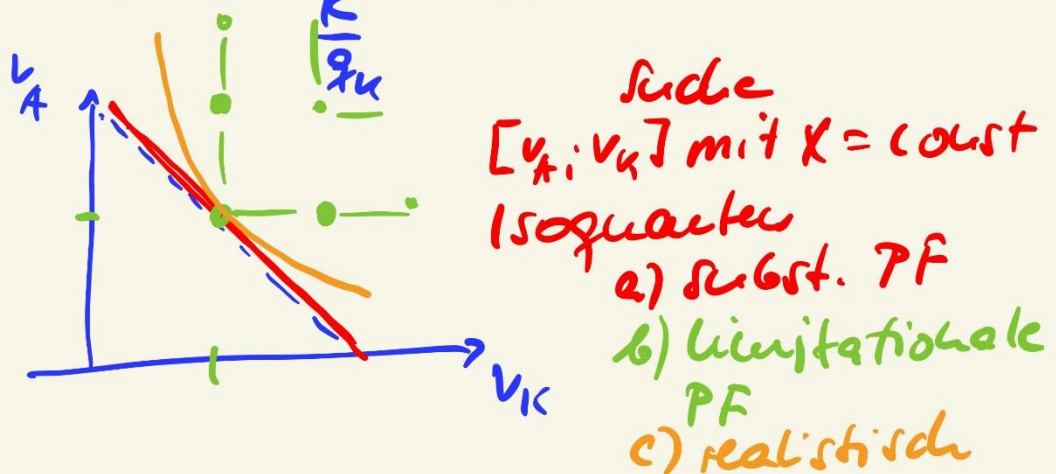 K
q_K
v_A
Suche
[v_A; v_K] mit X = const
Isoquanten
a) subst. PF
b) limitationale
PF
c) realistisch
v_K